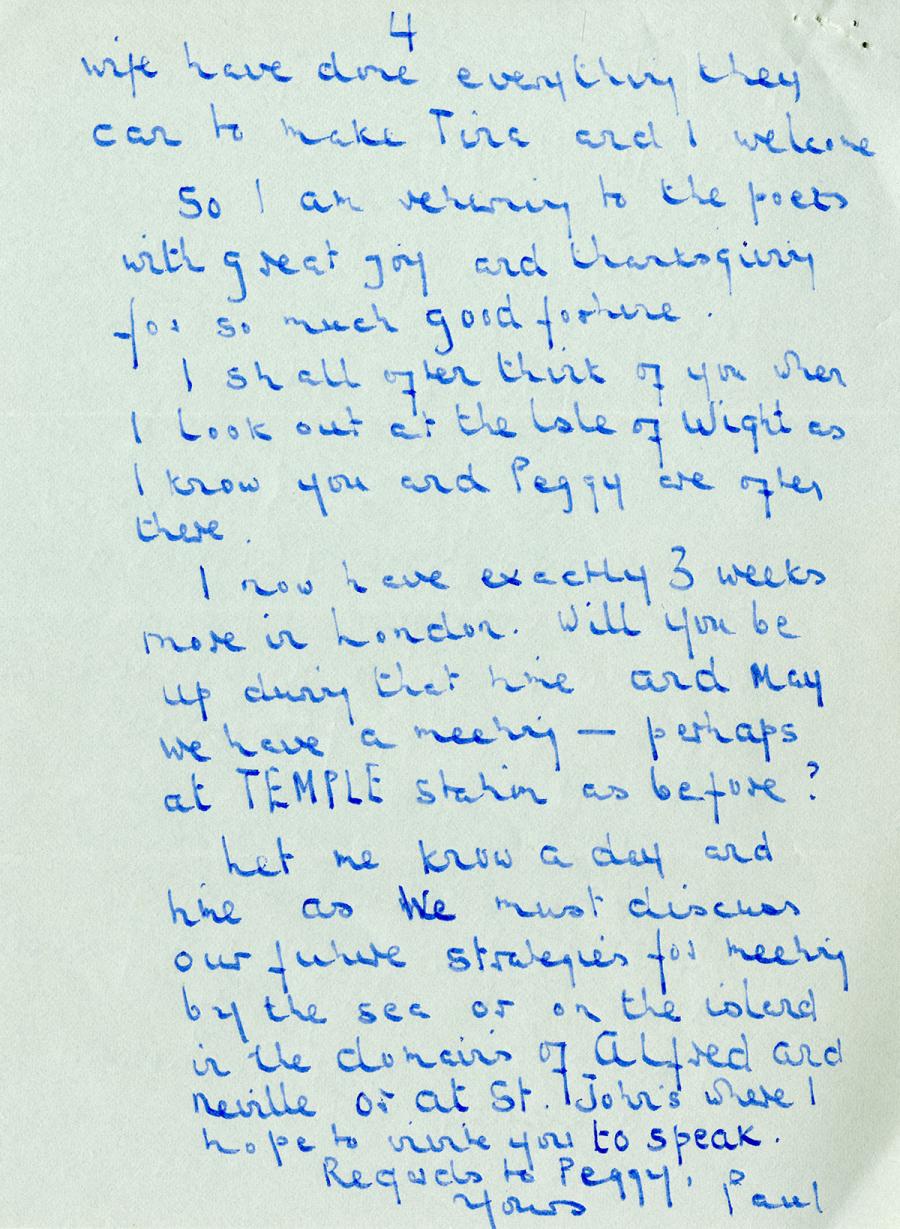 4
wife have done everything they
can to make Tina and I welcome
So I am returning to the poets
with great joy and thanksgiving
for so much good fortune.
I shall often think of you when
I look out at the Isle of Wight as
I know you and Peggy are often
there.
I now have exactly 3 weeks
more in London. Will you be
up during that time and May
we have a meeting — perhaps
at TEMPLE station as before?
Let me know a day and
time as We must discuss
our future strategies for meeting
by the sea or on the island
in the domains of Alfred and
neville or at St. John's where I
hope to invite you to speak.
Regards to Peggy,
Yours Paul